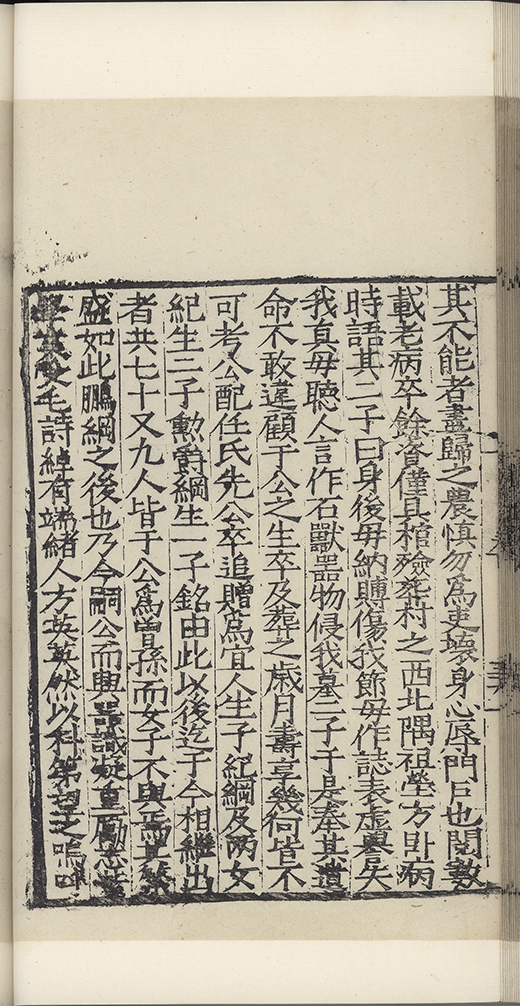 其不能者盡歸之農慎勿爲吏壞身心辱門戶也閱數
載老病卒餘資僅具棺殮葬村之西北隅祖塋方卧病
時語其二子曰身後毋納賻傷我節毋作誌表虛譽失
我真毋聽人言作石獸器物侵我墓二子于是奉其遺
命不敢違顧于公之生卒及葬之歲月壽享幾何皆不
可考公配任氏先公卒追贈爲宜人生子紀綱及兩女
紀生二子勲爵綱生一子銘由此以後迄于今相繼出
者共七十又九人皆于公爲曾孫而女子不與焉其繁
盛如此鵬綱之後也乃今嗣公而興器識凝重勵志
毛詩綽有端緒人方英英然以科第望之嗚呼